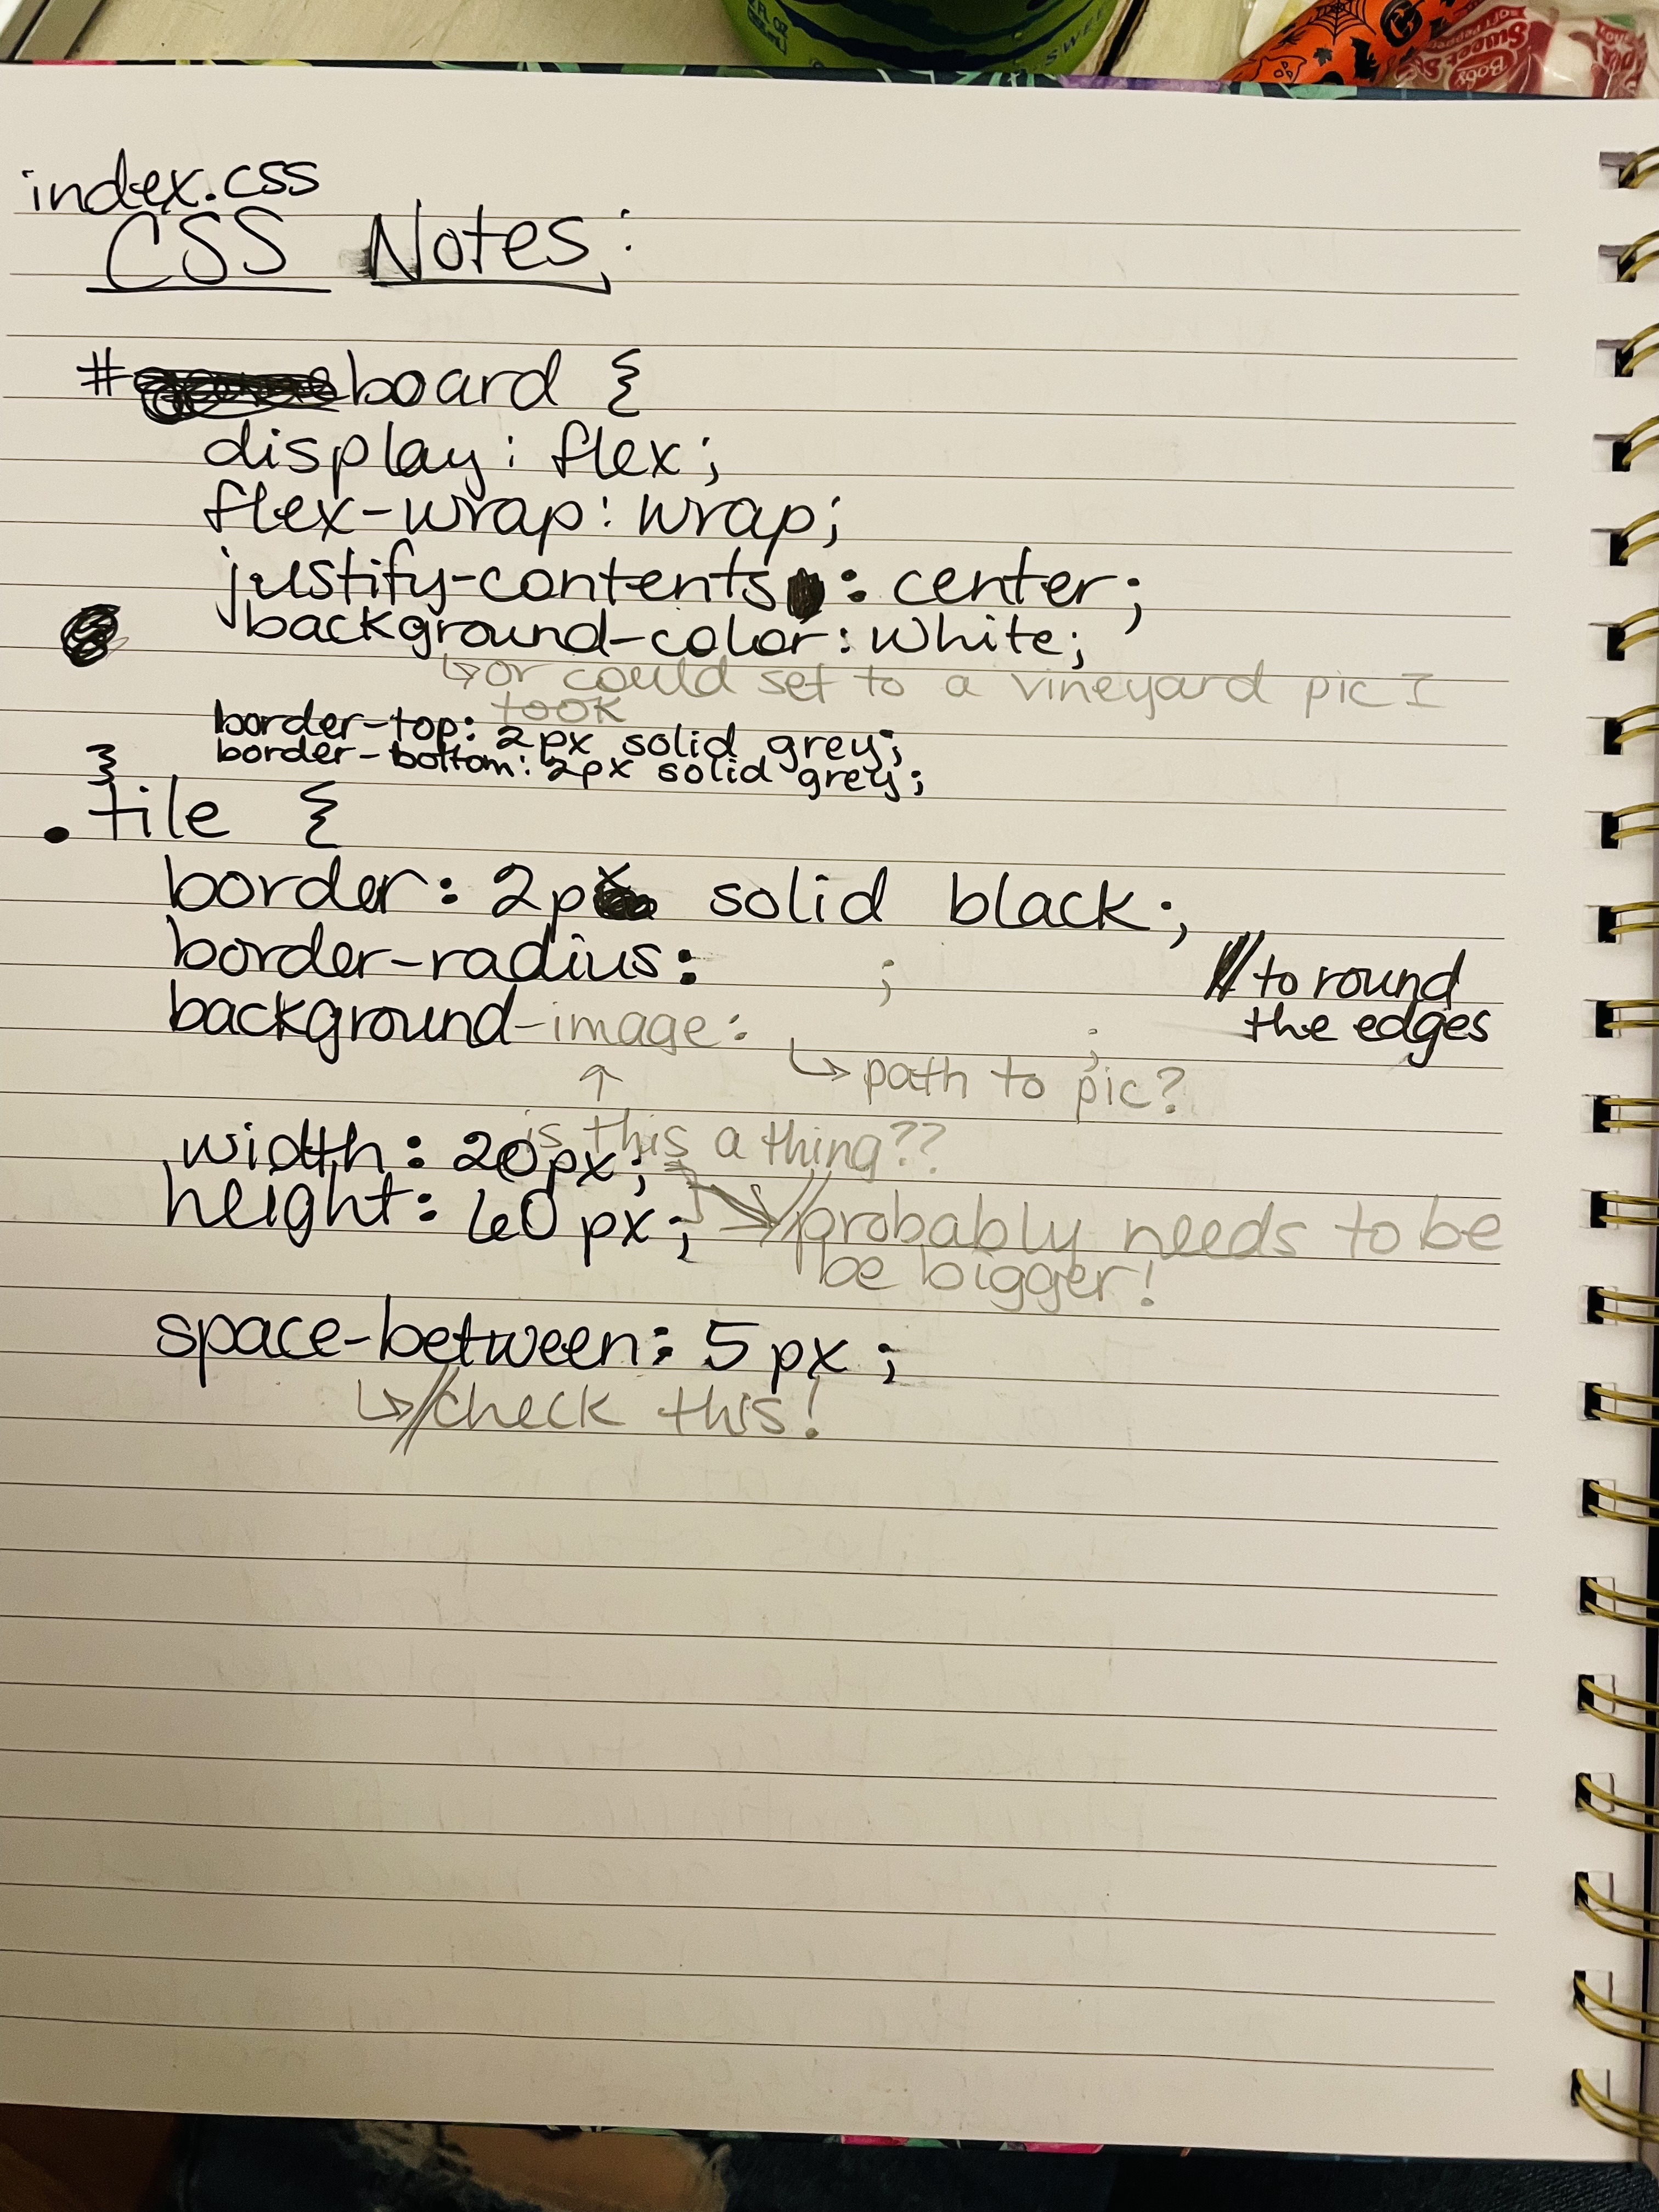 index.css
CSS Notes:
#board {
display: flex;
flex-wrap: wrap;
justify-contents: center;
background-color: white;
↳ or could set to a vineyard pic I
took
border-top: 2px solid grey;
border-bottom: 2px solid grey;
}
.tile {
border: 2px solid black;
border-radius: ;
// to round
the edges
background-image: ;
↳ path to pic?
↑
is this a thing??
width: 20px;
height: 60px;
// probably needs to be
be bigger!
space-between: 5px;
↳ // check this!